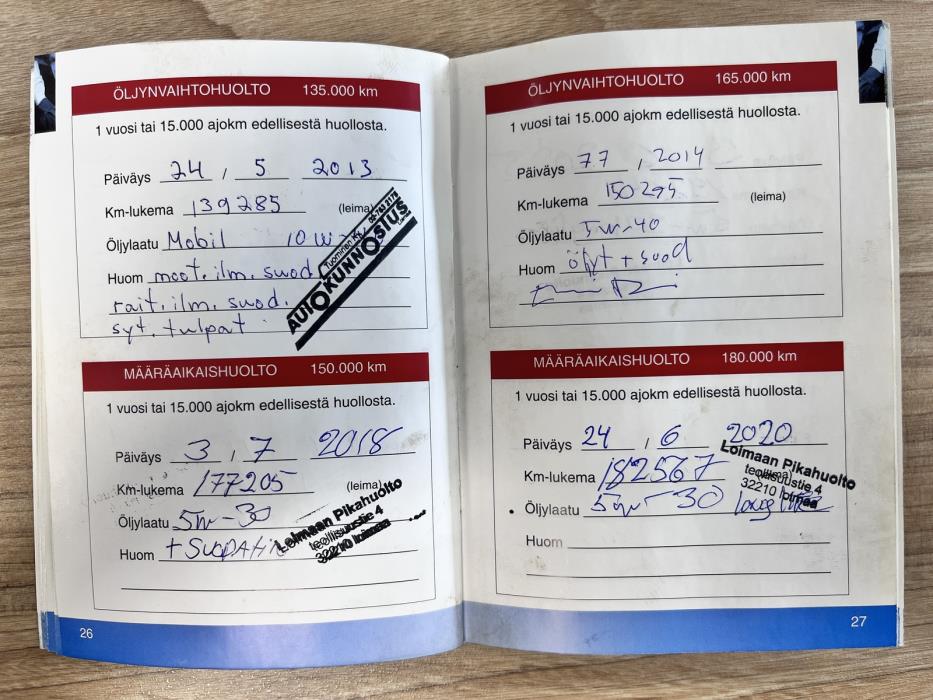 ÖLJYNVAIHTOHUOLTO 135.000 km
1 vuosi tai 15.000 ajokm edellisestä huollosta.
Päiväys 24 / 5 2013
Km-lukema 139285 (leima)
Öljylaatu Mobil 10w-
Huom moot. ilm. suod
rait. ilm. suod.
syt. tulpat
Tuominen Ky
AUTOKUNNOSTUS
MÄÄRÄAIKAISHUOLTO 150.000 km
1 vuosi tai 15.000 ajokm edellisestä huollosta.
Päiväys 3 / 7 2018
Km-lukema 177205 (leima)
Öljylaatu 5w-30
Huom + SUODATIN
Loimaan Pikahuolto
teollisuustie 4
32210 loimaa
26
ÖLJYNVAIHTOHUOLTO 165.000 km
1 vuosi tai 15.000 ajokm edellisestä huollosta.
Päiväys 77 / 2014
Km-lukema 150295 (leima)
Öljylaatu 5w-40
Huom öljyt + suod
MÄÄRÄAIKAISHUOLTO 180.000 km
1 vuosi tai 15.000 ajokm edellisestä huollosta.
Päiväys 24 / 6 2020
Km-lukema 182567 (leima)
Öljylaatu 5w-30 long
Huom
Loimaan Pikahuolto
teollisuustie 4
32210 loimaa
27